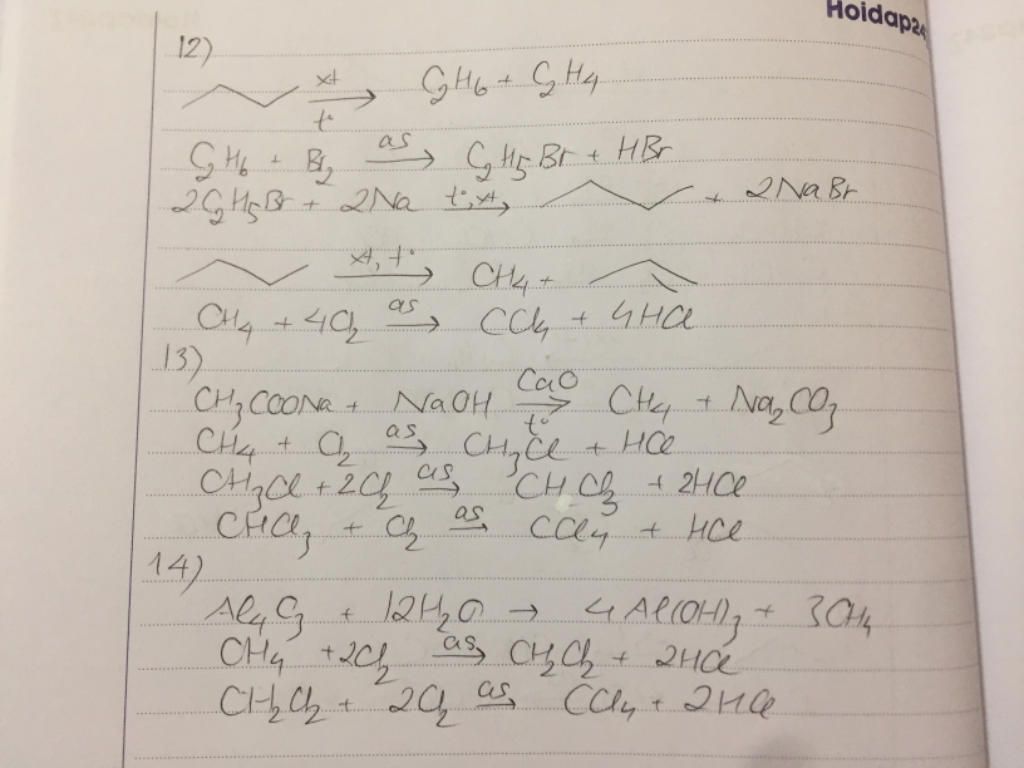 Hoidap24
12)
xt t° → C₂H₆ + C₂H₄
C₂H₆ + Br₂ as → C₂H₅Br + HBr
2C₂H₅Br + 2Na t°, xt → + 2NaBr
xt, t° → CH₄ +
CH₄ + 4Cl₂ as → CCl₄ + 4HCl
13)
CH₃COONa + NaOH CaO t° → CH₄ + Na₂CO₃
CH₄ + Cl₂ as → CH₃Cl + HCl
CH₃Cl + 2Cl₂ as → CHCl₃ + 2HCl
CHCl₃ + Cl₂ as → CCl₄ + HCl
14)
Al₄C₃ + 12H₂O → 4Al(OH)₃ + 3CH₄
CH₄ + 2Cl₂ as → CH₂Cl₂ + 2HCl
CH₂Cl₂ + 2Cl₂ as → CCl₄ + 2HCl